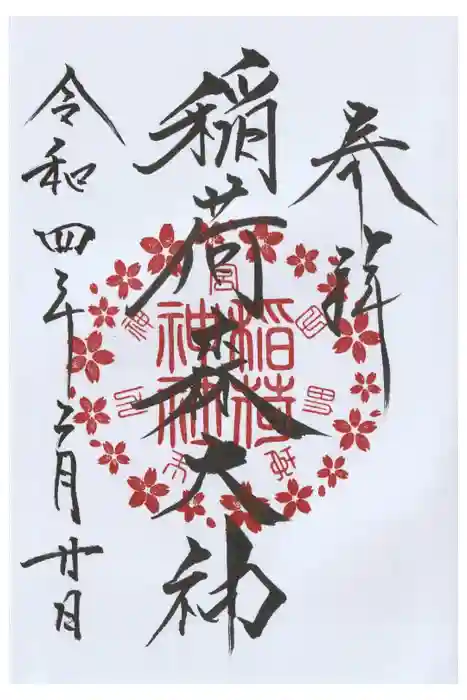 奉拝
稲荷森大神
稲荷
神社
令和四年二月廿日